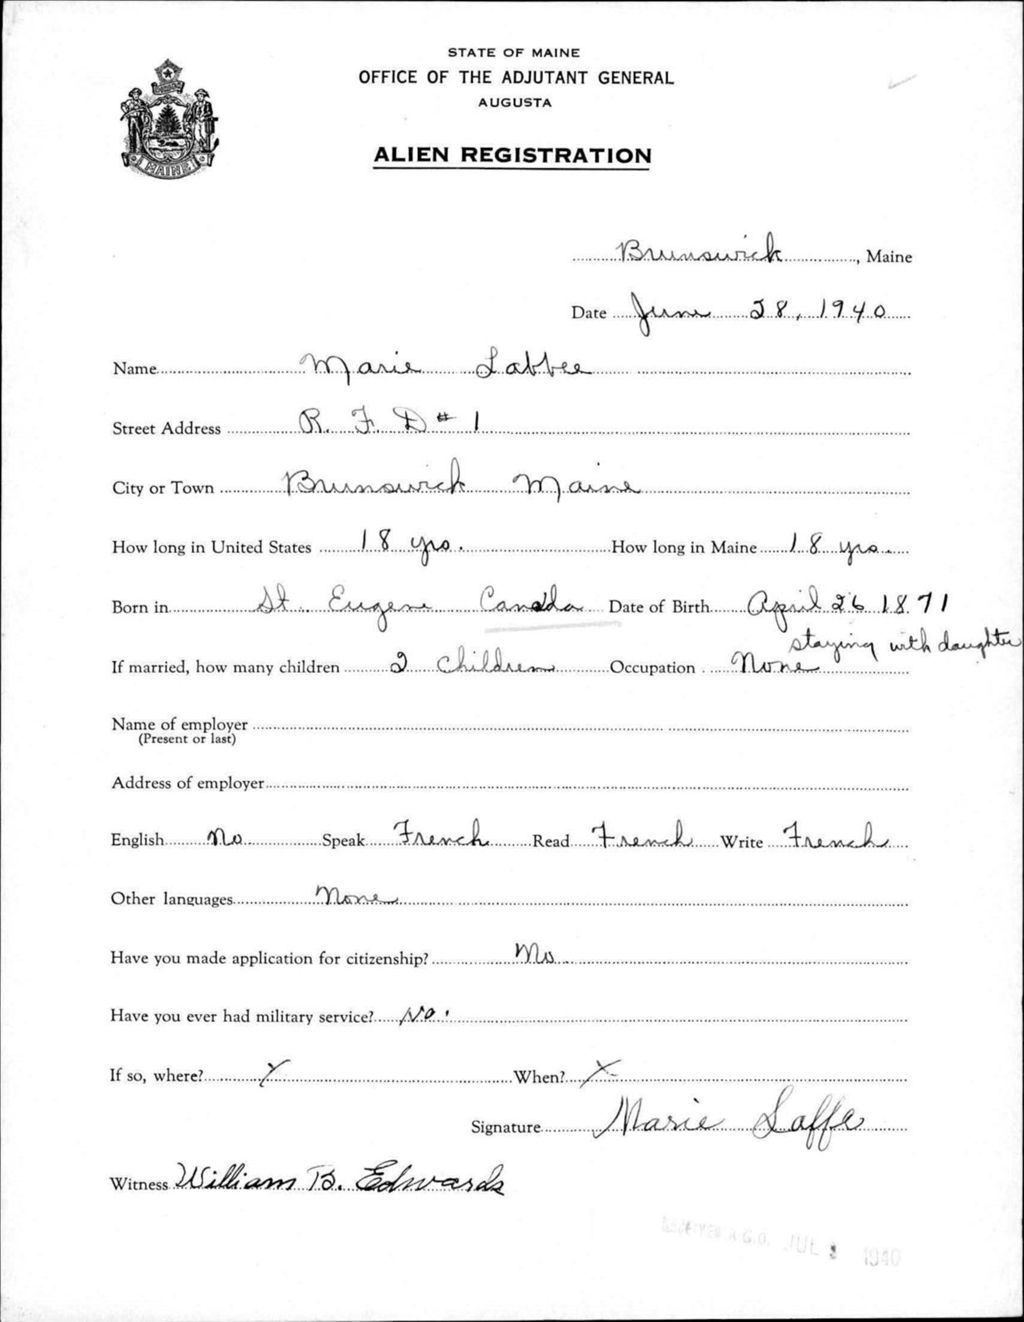 STATE OF MAINE
OFFICE OF THE ADJUTANT GENERAL
AUGUSTA
ALIEN REGISTRATION
MAINE
Brunswick, Maine
Date June 28, 1940
Name Marie Labbee
Street Address R. F. D # 1
City or Town Brunswick Maine
How long in United States 18 yrs. How long in Maine 18 yrs.
Born in St. Eugene Canada Date of Birth April 26 1871
staying with daughter
If married, how many children 2 children Occupation None
Name of employer
(Present or last)
Address of employer
English No Speak French Read French Write French
Other languages None
Have you made application for citizenship? No
Have you ever had military service? No.
If so, where? X When? X
Signature Marie Laffe
Witness William B. Edwards
RECEIVED A.G.O. JUL 1940